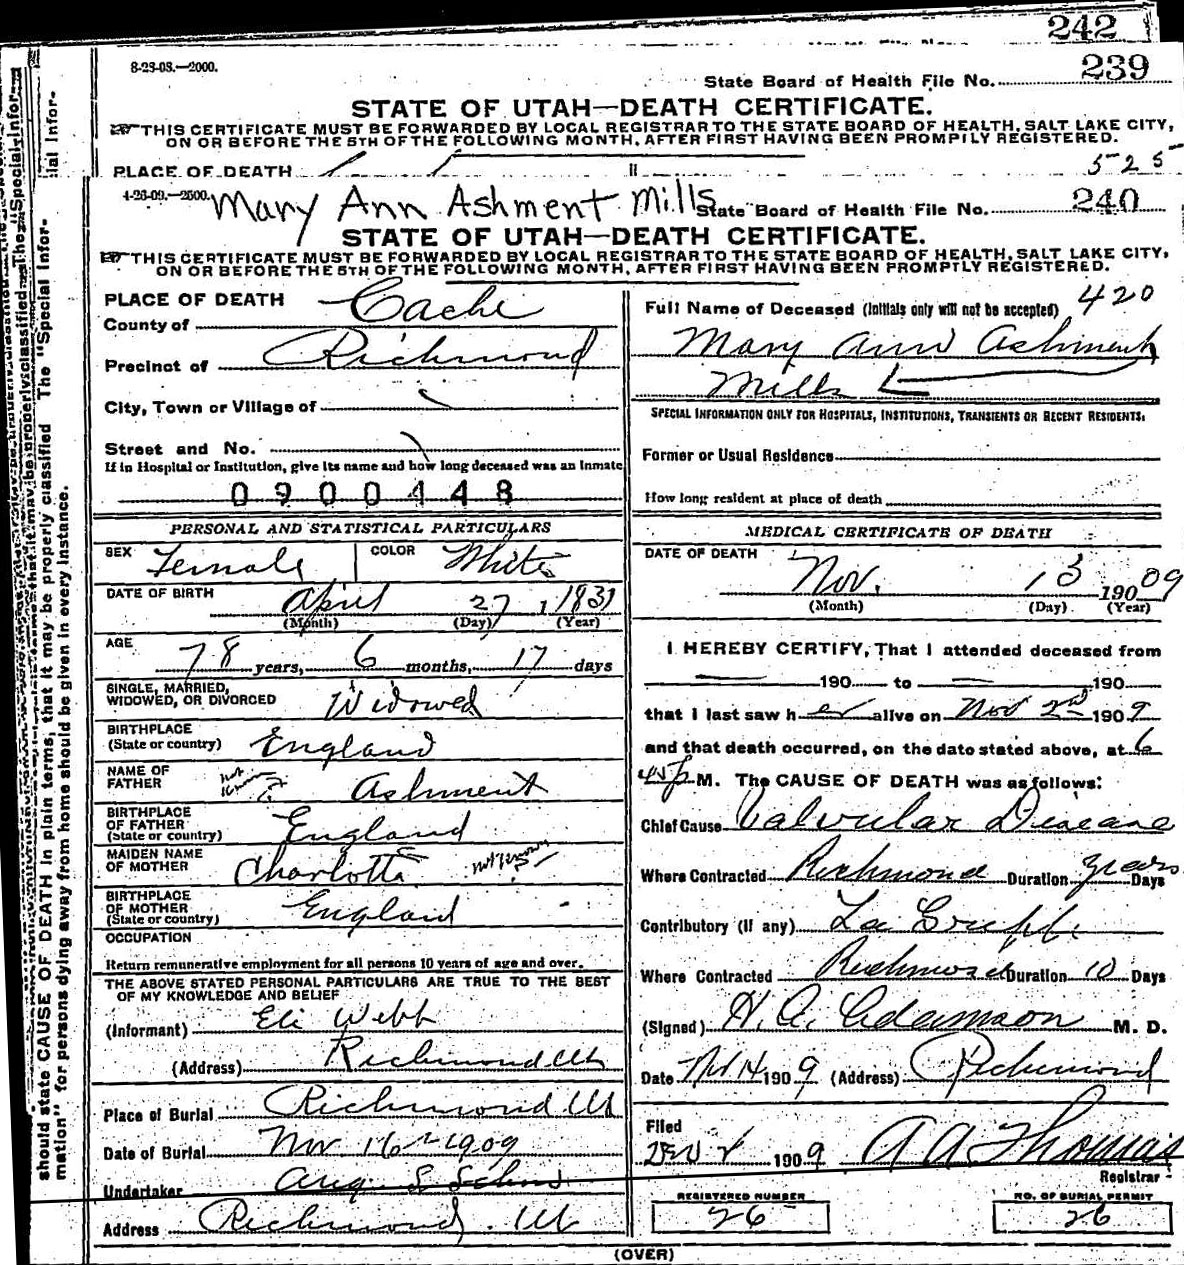 242
8-23-08.—2000.
239
State Board of Health File No.
STATE OF UTAH—DEATH CERTIFICATE.
THIS CERTIFICATE MUST BE FORWARDED BY LOCAL REGISTRAR TO THE STATE BOARD OF HEALTH, SALT LAKE CITY,
ON OR BEFORE THE 5TH OF THE FOLLOWING MONTH, AFTER FIRST HAVING BEEN PROMPTLY REGISTERED.
PLACE OF DEATH
525
4-26-09.—2500. Mary Ann Ashment Mills State Board of Health File No. 240
STATE OF UTAH—DEATH CERTIFICATE.
THIS CERTIFICATE MUST BE FORWARDED BY LOCAL REGISTRAR TO THE STATE BOARD OF HEALTH, SALT LAKE CITY,
ON OR BEFORE THE 5TH OF THE FOLLOWING MONTH, AFTER FIRST HAVING BEEN PROMPTLY REGISTERED.
PLACE OF DEATH
County of Cache
Precinct of Richmond
City, Town or Village of
Street and No.
If in Hospital or Institution, give its name and how long deceased was an inmate
0900448
PERSONAL AND STATISTICAL PARTICULARS
SEX Female COLOR White
DATE OF BIRTH April 27, 1831
(Month) (Day) (Year)
AGE 78 years, 6 months, 17 days
SINGLE, MARRIED,
WIDOWED, OR DIVORCED Widowed
BIRTHPLACE
(State or country) England
NAME OF
FATHER not known ? Ashment
BIRTHPLACE
OF FATHER
(State or country) England
MAIDEN NAME
OF MOTHER Charlotte not known ?
BIRTHPLACE
OF MOTHER
(State or country) England
OCCUPATION
Return remunerative employment for all persons 10 years of age and over.
THE ABOVE STATED PERSONAL PARTICULARS ARE TRUE TO THE BEST
OF MY KNOWLEDGE AND BELIEF
(Informant) Eli Webb
(Address) Richmond Ut
Place of Burial Richmond Ut
Date of Burial Nov. 16th 1909
Undertaker
Address Richmond. Ut
420
Full Name of Deceased (Initials only will not be accepted)
Mary Ann Ashment
Mills
SPECIAL INFORMATION ONLY FOR HOSPITALS, INSTITUTIONS, TRANSIENTS OR RECENT RESIDENTS.
Former or Usual Residence
How long resident at place of death
MEDICAL CERTIFICATE OF DEATH
DATE OF DEATH Nov. 13 1909
(Month) (Day) (Year)
I HEREBY CERTIFY, That I attended deceased from
— 190 to — 190
that I last saw her alive on Nov 2nd 1909
and that death occurred, on the date stated above, at 6
45 P M. The CAUSE OF DEATH was as follows:
Chief Cause Valvular Disease
Where Contracted Richmond Duration years Days
Contributory (If any) La Grippe
Where Contracted Richmond Duration 10 Days
(Signed) H. A. Adamson M. D.
Date Nov 14 1909 (Address) Richmond
Filed
1909 A A Thomas
Registrar
REGISTERED NUMBER
26
NO. OF BURIAL PERMIT
26
(OVER)
should state CAUSE OF DEATH in plain terms, that it may be properly classified The "Special Infor-
mation" for persons dying away from home should be given in every instance.